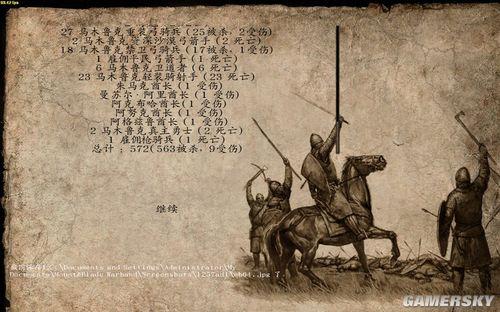 27 马木鲁克重装弓骑兵 (25被杀, 2受伤)
2 马木鲁克资深沙漠弓箭手 (2 死亡)
18 马木鲁克禁卫弓骑兵 (17被杀, 1受伤)
1 雇佣平民弓箭手 (1 死亡)
6 马木鲁克卫道者 (6 死亡)
23 马木鲁克轻装骑射手 (23 死亡)
朱马酋长 (1 受伤)
曼苏尔·阿里酋长 (1 受伤)
阿克布哈酋长 (1 受伤)
阿努克酋长 (1 受伤)
阿格兹鲁酋长 (1 受伤)
2 马木鲁克真主勇士 (2 死亡)
1 雇佣枪骑兵 (1 死亡)
总计 : 572(563被杀, 9受伤)
继续
\Documents and Settings\Administrator\My
Documents\Mount&Blade Warband\Screenshots\
GAMERSKY